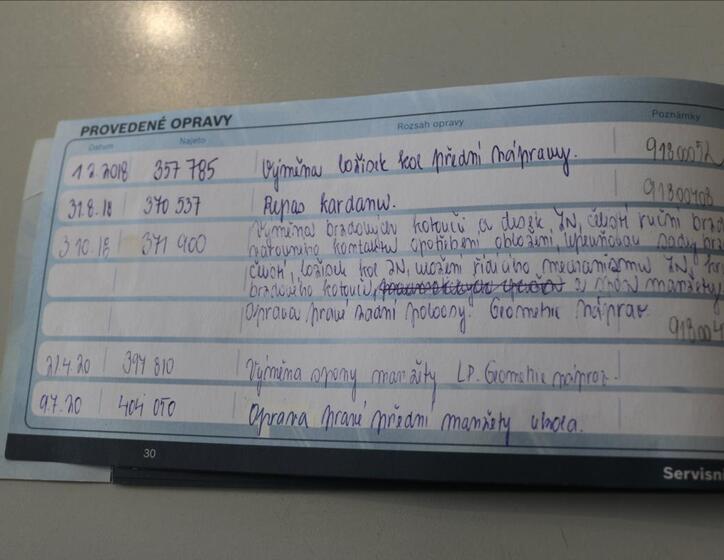 PROVEDENÉ OPRAVY
Datum Najeto Rozsah opravy Poznámky
1.2.2018 357 785 Výměna ložisek kol přední nápravy. 9180052
31.8.18 370 537 Repas kardanu. 91800408
3.10.18 371 900 Výměna brzdových kotoučů a desek ZN, částí ruční brzd
opotřebení obložení, sady brz
částí, ložisek kol ZN, uložení řídícího mechanismu ZN,
brzdového kotouče, manžety
Oprava pravé zadní poloosy. Geometrie náprav. 918004
394 810 Výměna manžety LP. Geometrie náprav.
9.7.20 404 050 Oprava pravé přední manžety
30
Servisní